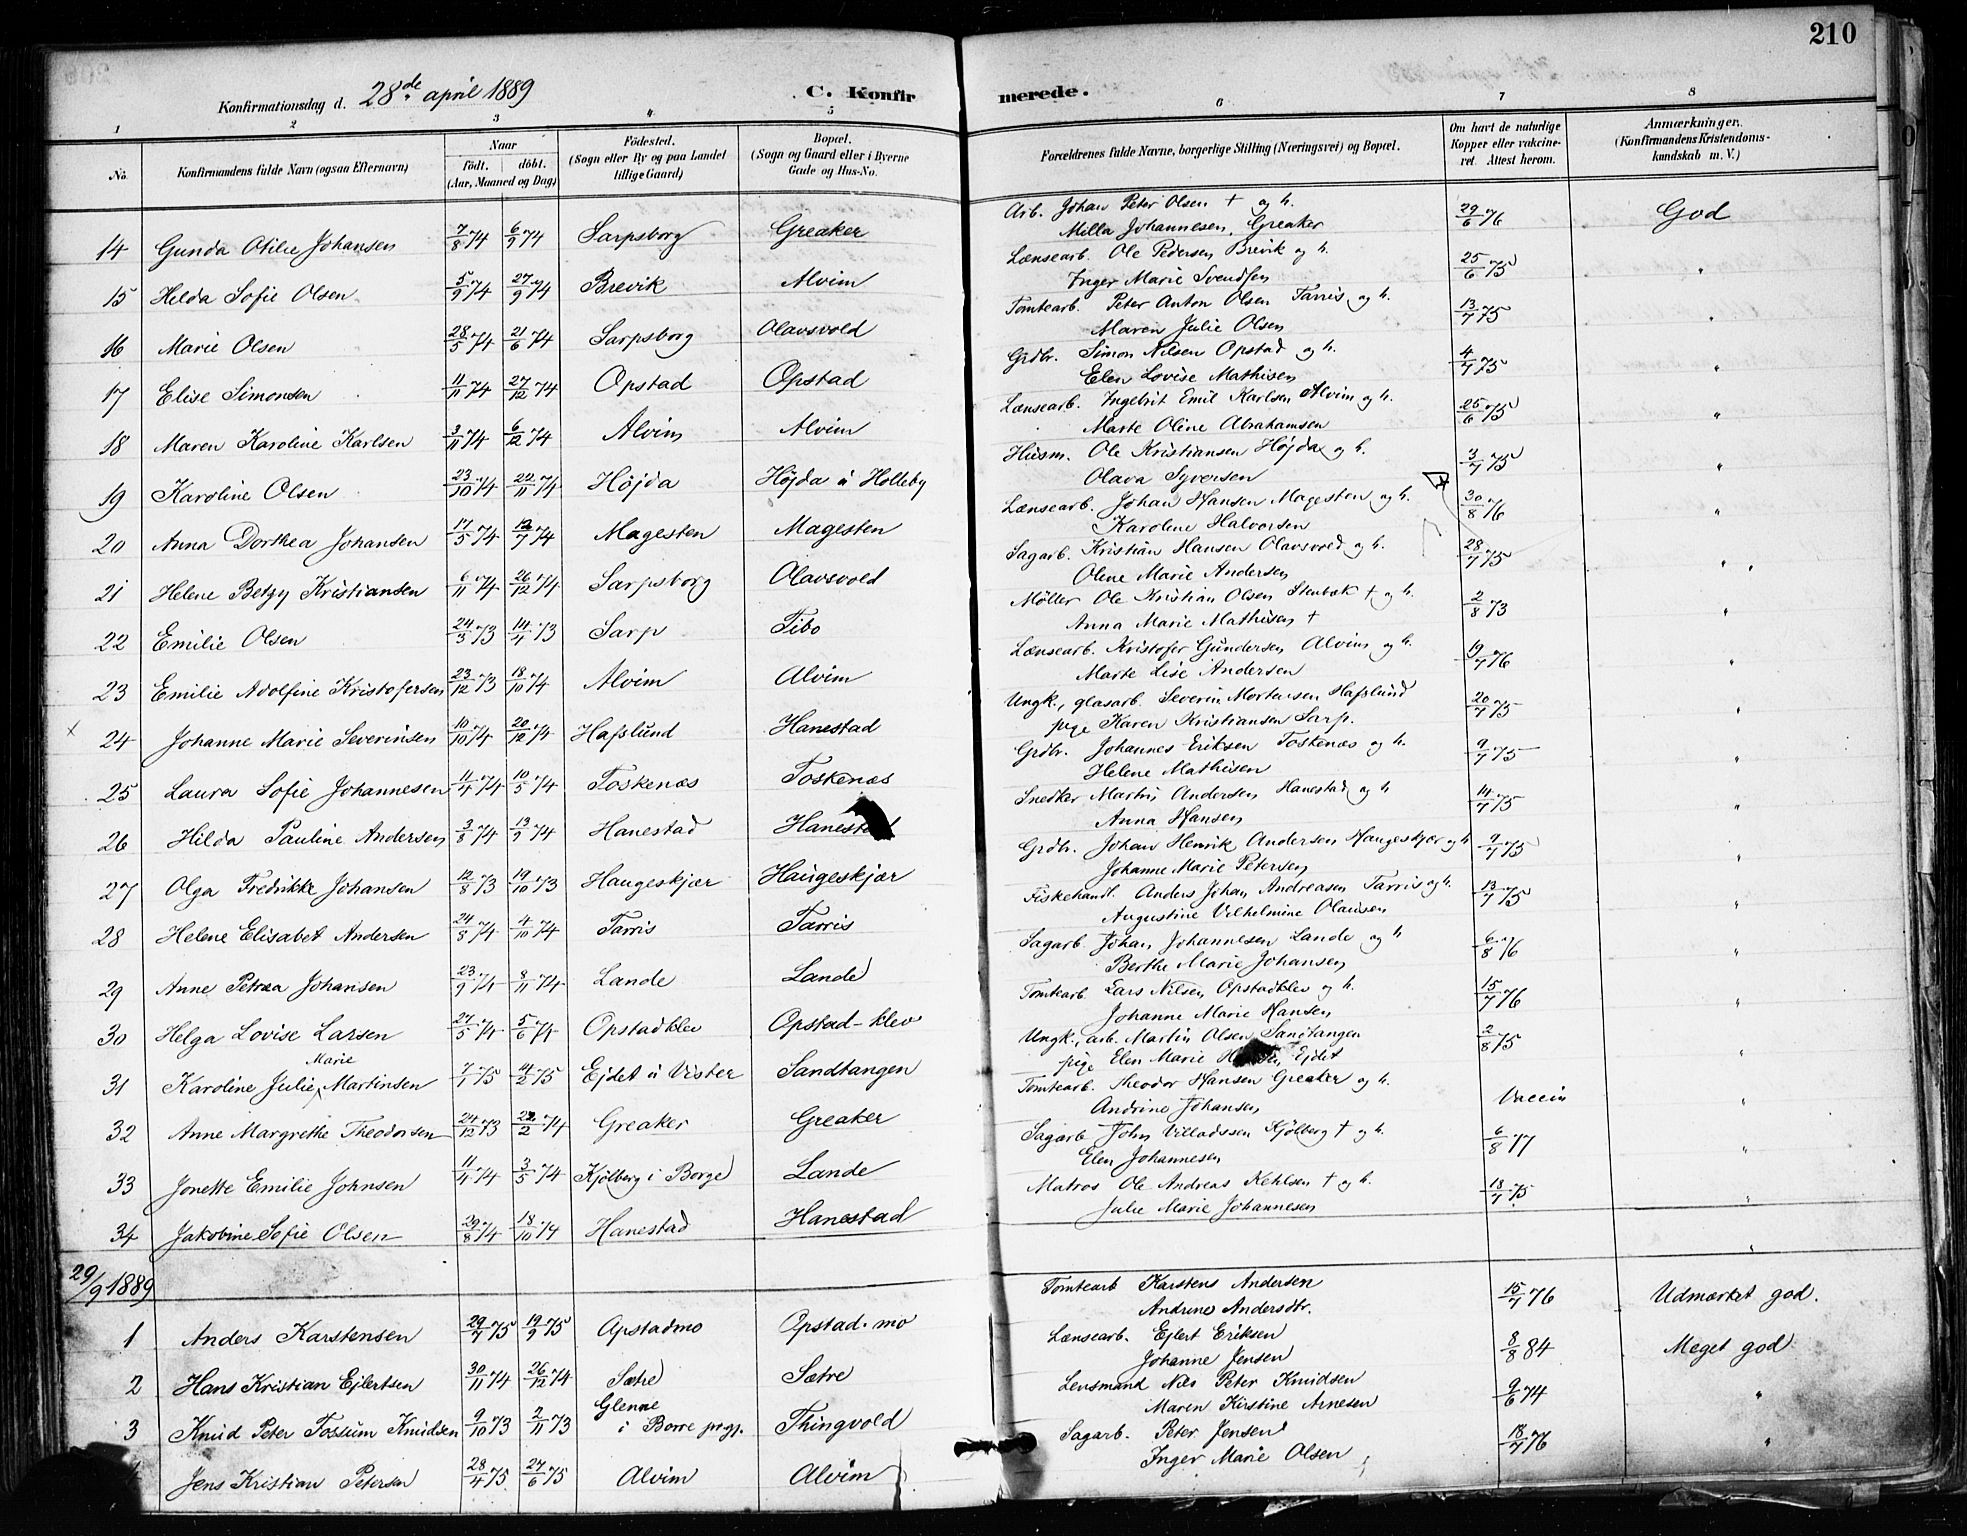 210
Konfirmationsdag d. 28de april 1889
C. Konfirmerede.
1 2 3 4 5 6 7 8
No. Konfirmandens fulde Navn (ogsaa Efternavn) Naar født. døbt. (Aar, Maaned og Dag) Fødested. (Sogn eller By og paa Landet tillige Gaard) Bopæl. (Sogn og Gaard eller i Byerne Gade og Hus-No. Forældrenes fulde Navne, borgerlige Stilling (Næringsvei) og Bopæl. Om havt de naturlige Kopper eller vakcineret. Attest herom. Anmærkninger. (Konfirmandens Kristendomskundskab m. V.)
14 Gunda Otilie Johansen 7/8 74 6/9 74 Sarpsborg Greaker Arb. Johan Peter Olsen † og h. Milla Johannesen, Greaker 29/6 76 God
15 Hilda Sofie Olsen 5/9 74 27/9 74 Brevik Alvim Lænsearb. Ole Pedersen Brevik og h. Inger Marie Svendsen 25/6 75 "
16 Marie Olsen 28/5 74 21/6 74 Sarpsborg Olavsvold Tomtearb. Peter Anton Olsen Tarris og h. Maren Julie Olsen 13/7 75 "
17 Elise Simonsen 11/11 74 27/12 74 Opstad Opstad Grdbr. Simon Nilsen Opstad og h. Elen Lovise Mathisen 4/7 75 "
18 Maren Karoline Karlsen 3/11 74 6/12 74 Alvim Alvim Lænsearb. Ingebrit Emil Karlsen Alvim og h. Marte Oline Abrahamsen 25/6 75 "
19 Karoline Olsen 23/10 74 22/11 74 Højda Højda u Holleby Husm. Ole Kristiansen Højda og h. Olava Syversen 3/7 75 "
20 Anna Dorthea Johansen 17/5 74 12/7 74 Magesten Magesten Lænsearb. Johan Hansen Magesten og h. Karoline Halvorsen 30/8 76 "
21 Helene Betzy Kristiansen 6/11 74 26/12 74 Sarpsborg Olavsvold Sagarb. Kristian Hansen Olavsvold og h. Olene Marie Andersen 28/7 75 "
22 Emilie Olsen 24/3 73 14/4 73 Sarp Tibo Møller Ole Kristian Olsen Stenbæk † og h. Anna Marie Mathisen † 2/8 73 "
23 Emilie Adolfine Kristofersen 23/12 73 18/10 74 Alvim Alvim Lænsearb. Kristofer Gundersen Alvim og h. Marte Lise Andersen 19/7 76 "
24 Johanne Marie Severinsen 10/10 74 20/12 74 Hafslund Hanestad Ungk., glasarb. Severin Mortensen Hafslund pige Karen Kristiansen Sarp. 20/7 75 "
25 Laura Sofie Johannesen 11/4 74 10/5 74 Toskenæs Toskenæs Grdbr. Johannes Eriksen Toskenæs og h. Helene Mathisen 9/7 75 "
26 Hilda Pauline Andersen 3/8 74 13/9 74 Hanestad Hanestad Snedker Martin Andersen Hanestad og h Anna Hansen 14/7 75 "
27 Olga Fredrikke Johansen 12/8 73 19/10 73 Haugeskjær Haugeskjær Grdbr. Johan Henrik Andersen Haugeskjær og h Johanne Marie Petersen 9/7 75 "
28 Helene Elisabet Andersen 24/8 74 4/10 74 Tarris Tarris Fiskehandl. Anders Johan Andreasen Tarris og h. Augustine Vilhelmine Olausen 13/7 75 "
29 Anne Petrea Johansen 23/9 74 8/11 74 Lande Lande Sagarb. Johan Johannesen Lande og h Berthe Marie Johansen 6/8 76 "
30 Helga Lovise Larsen 27/5 74 5/6 74 Opstadklev Opstad-klev Tomtearb. Lars Nilsen, Opstadklev og h. Johanne Marie Hansen 15/7 76 "
31 Karoline Julie Marie Martinsen 7/1 75 4/2 75 Ejdet u Vister Sandtangen Ungk., arb. Martin Olsen Sandtangen pige Elen Marie Ejdet 2/8 75 "
32 Anne Margrethe Theodorsen 24/12 73 22/2 74 Greaker Greaker Tomtearb. Theodor Hansen Greaker og h. Andrine Johansen Vaccin "
33 Jonette Emilie Johnsen 11/4 74 3/5 74 Kjølberg i Borge Lande Sagarb John Villadssen Kjølberg † og h. Elen Johannesen 6/8 77 "
34 Jakobine Sofie Olsen 29/8 74 18/10 74 Hanestad Hanestad Matros Ole Andreas Kehlsen † og h. Julie Marie Johannesen 18/7 75 "
29/9 1889
1 Anders Karstensen 29/7 75 19/9 75 Opstadmo Opstad-mo Tomtearb Karstens Andersen Andrine Andersdtr. 15/7 76 Udmærket god.
2 Hans Kristian Ejlertsen 30/11 74 26/12 74 Sætre Sætre Lænsearb. Ejlert Eriksen Johanne Jensen 8/8 84 Meget god
3 Knud Peter Fossum Knudsen 9/10 73 2/11 73 Glenne i Borre prgj. Thingvold Lensmand Nils Peter Knudsen Maren Kirstine Arnesen 9/6 74 "
Jens Kristian Petersen 28/4 75 27/6 75 Alvim Alvim Sagarb. Peter Jensen Inger Marie Olsen 18/7 76 "